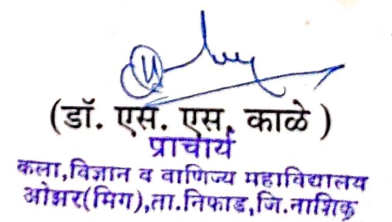 (डॉ. एस. एस. काळे )
प्राचार्य
कला,विज्ञान व वाणिज्य महाविद्यालय
ओझर(मिग),ता.निफाड,जि.नाशिक